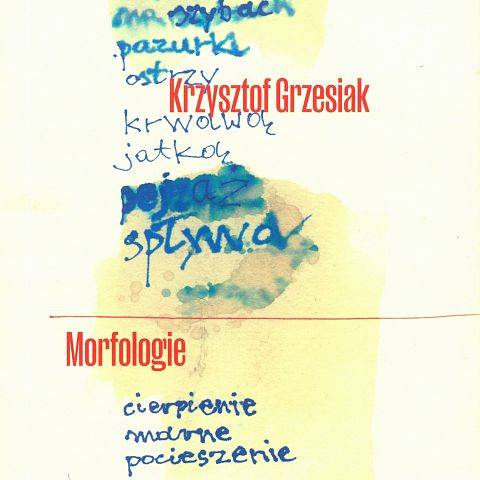 na szybach
pazurki
ostrzy
Krzysztof Grzesiak
krwawą
jatką
pejzaż
spływa
Morfologie
cierpienie
marne
pocieszenie